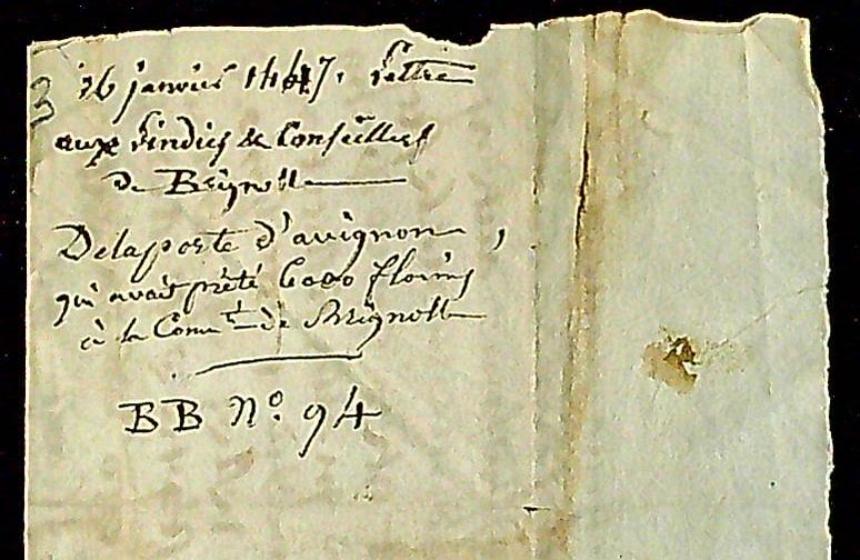 3 16 janvier 1447. Lettre
aux Sindics & Conseillers
de Brignolle
Delaporte d'avignon,
qui avait prêté 6000 florins
à la Com.té de Brignolle
BB Nº 94